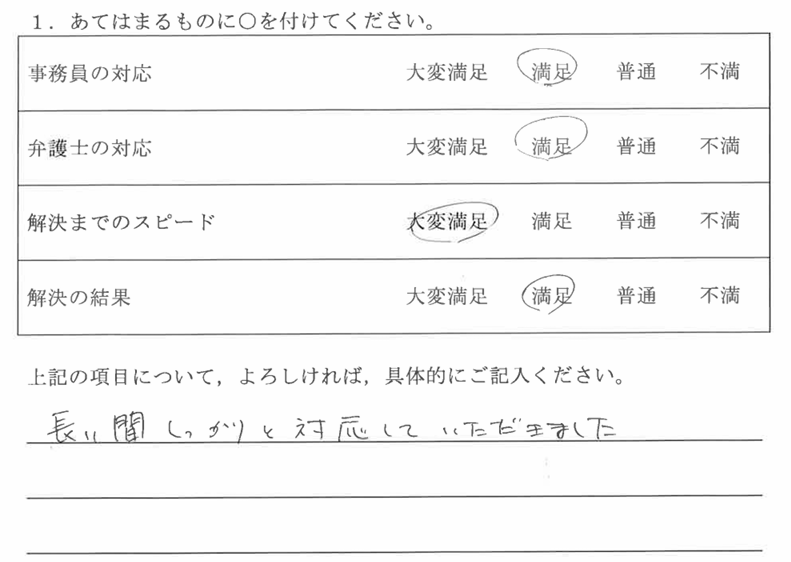 1．あてはまるものに〇を付けてください。
事務員の対応 大変満足 満足 普通 不満
弁護士の対応 大変満足 満足 普通 不満
解決までのスピード 大変満足 満足 普通 不満
解決の結果 大変満足 満足 普通 不満
上記の項目について，よろしければ，具体的にご記入ください。
長い間しっかりと対応していただきました